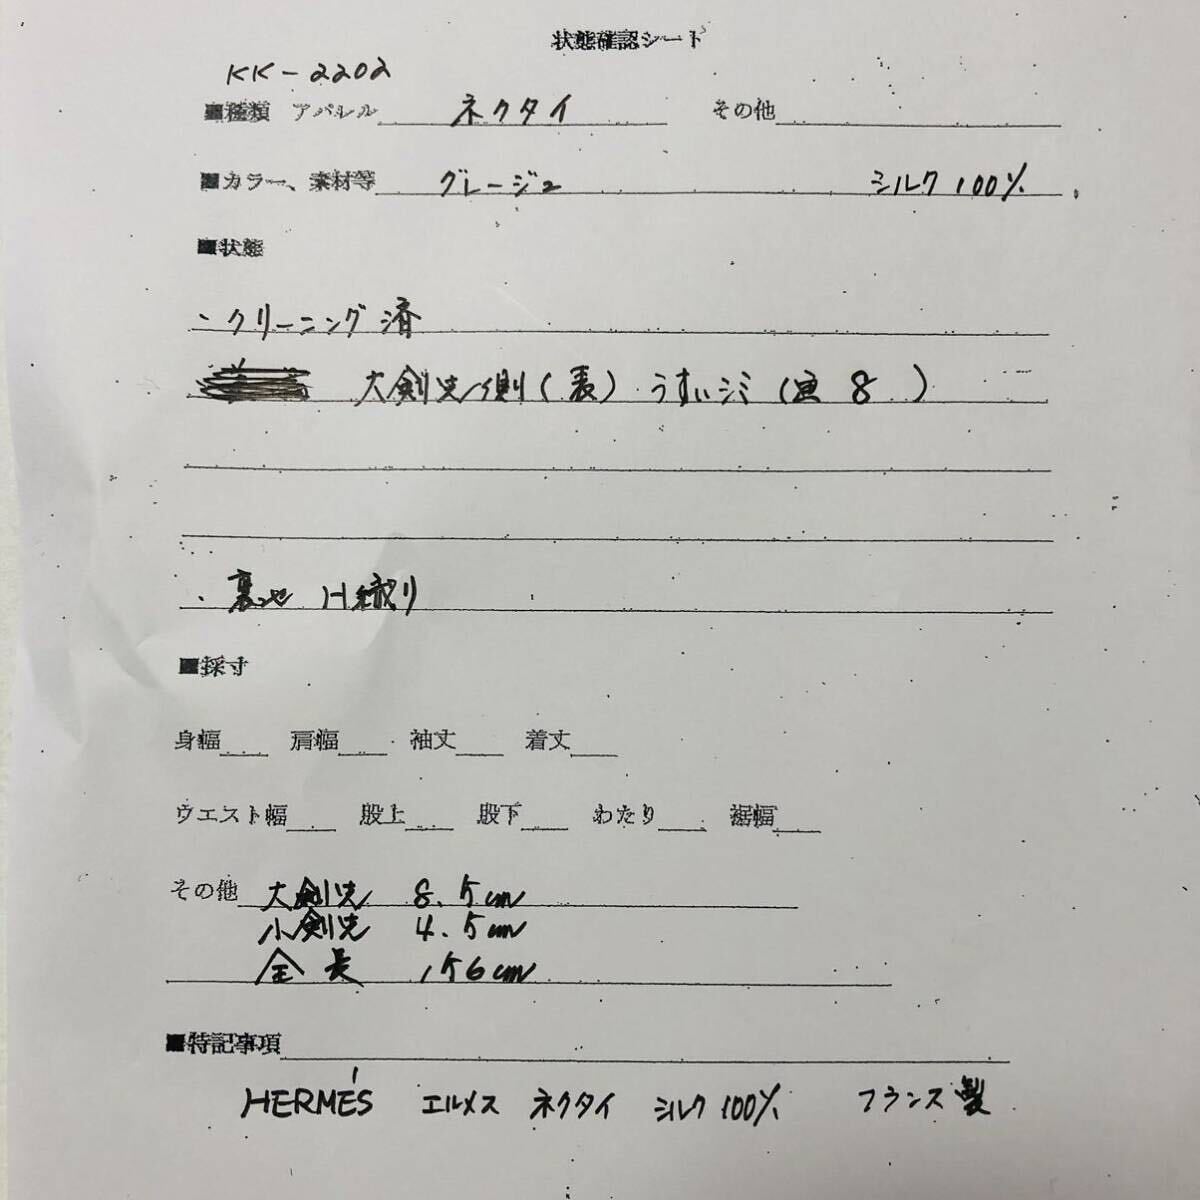 状態確認シート
KK-2202
■種類 アパレル ネクタイ その他
■カラー、素材等 グレージュ シルク 100%
■状態
・クリーニング済
大剣先側(表) うすいシミ (画 8 )
・裏地 H織り
■採寸
身幅 肩幅 袖丈 着丈
ウエスト幅 股上 股下 わたり 裾幅
その他 大剣先 8.5cm
小剣先 4.5cm
全長 156cm
■特記事項
HERMÉS エルメス ネクタイ シルク100% フランス製